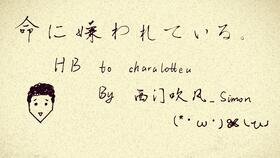 命に嫌われている。
HB to charalotteu
By 西门吹风_Simon
(*･ω･)